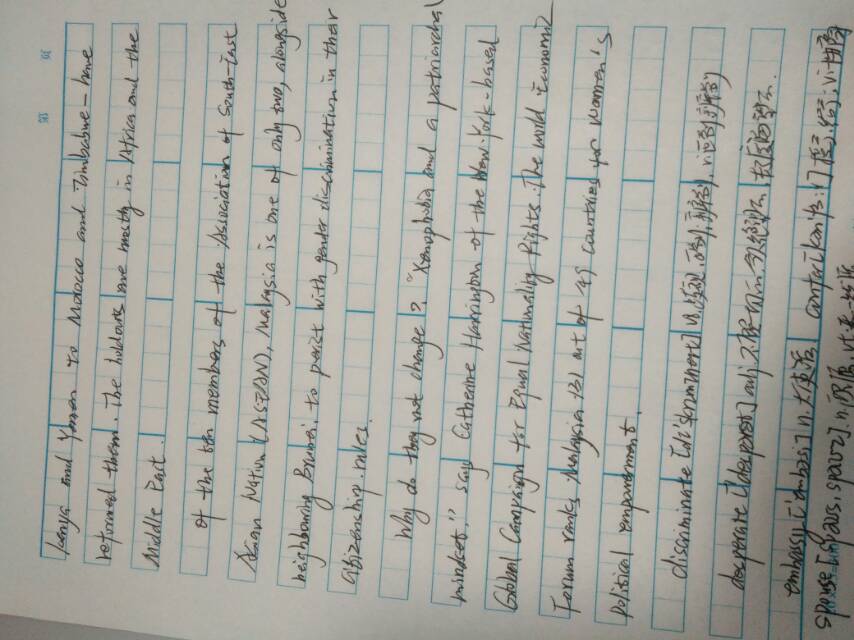 Kenya and Yemen to Morocco and Zimbabwe - have
reformed them. The holdouts are mostly in Africa and the
Middle East.
of the ten members of the Association of South-East
Asian Nation (ASEAN), Malaysia is one of only two, alongside
neighbouring Brunei, to persist with gender discrimination in their
citizenship rules.
Why do they not change? "Xenophobia and a patriarchal
mindset," say Catherine Harrington of the New-York-based
Global Campaign for Equal Nationality Rights. The world Economic
Forum ranks Malaysia 131 out of 149 countries for women's
political empowerment.
discriminate [dɪ'skrɪmɪneɪt] vt. 歧视. 区别. 辨别. vi. 区别. 辨别
desperate ['despərət] adj. 不顾一切的.
embassy ['embəsi] n. 大使馆
spouse [spaʊs, spaʊz]. n.